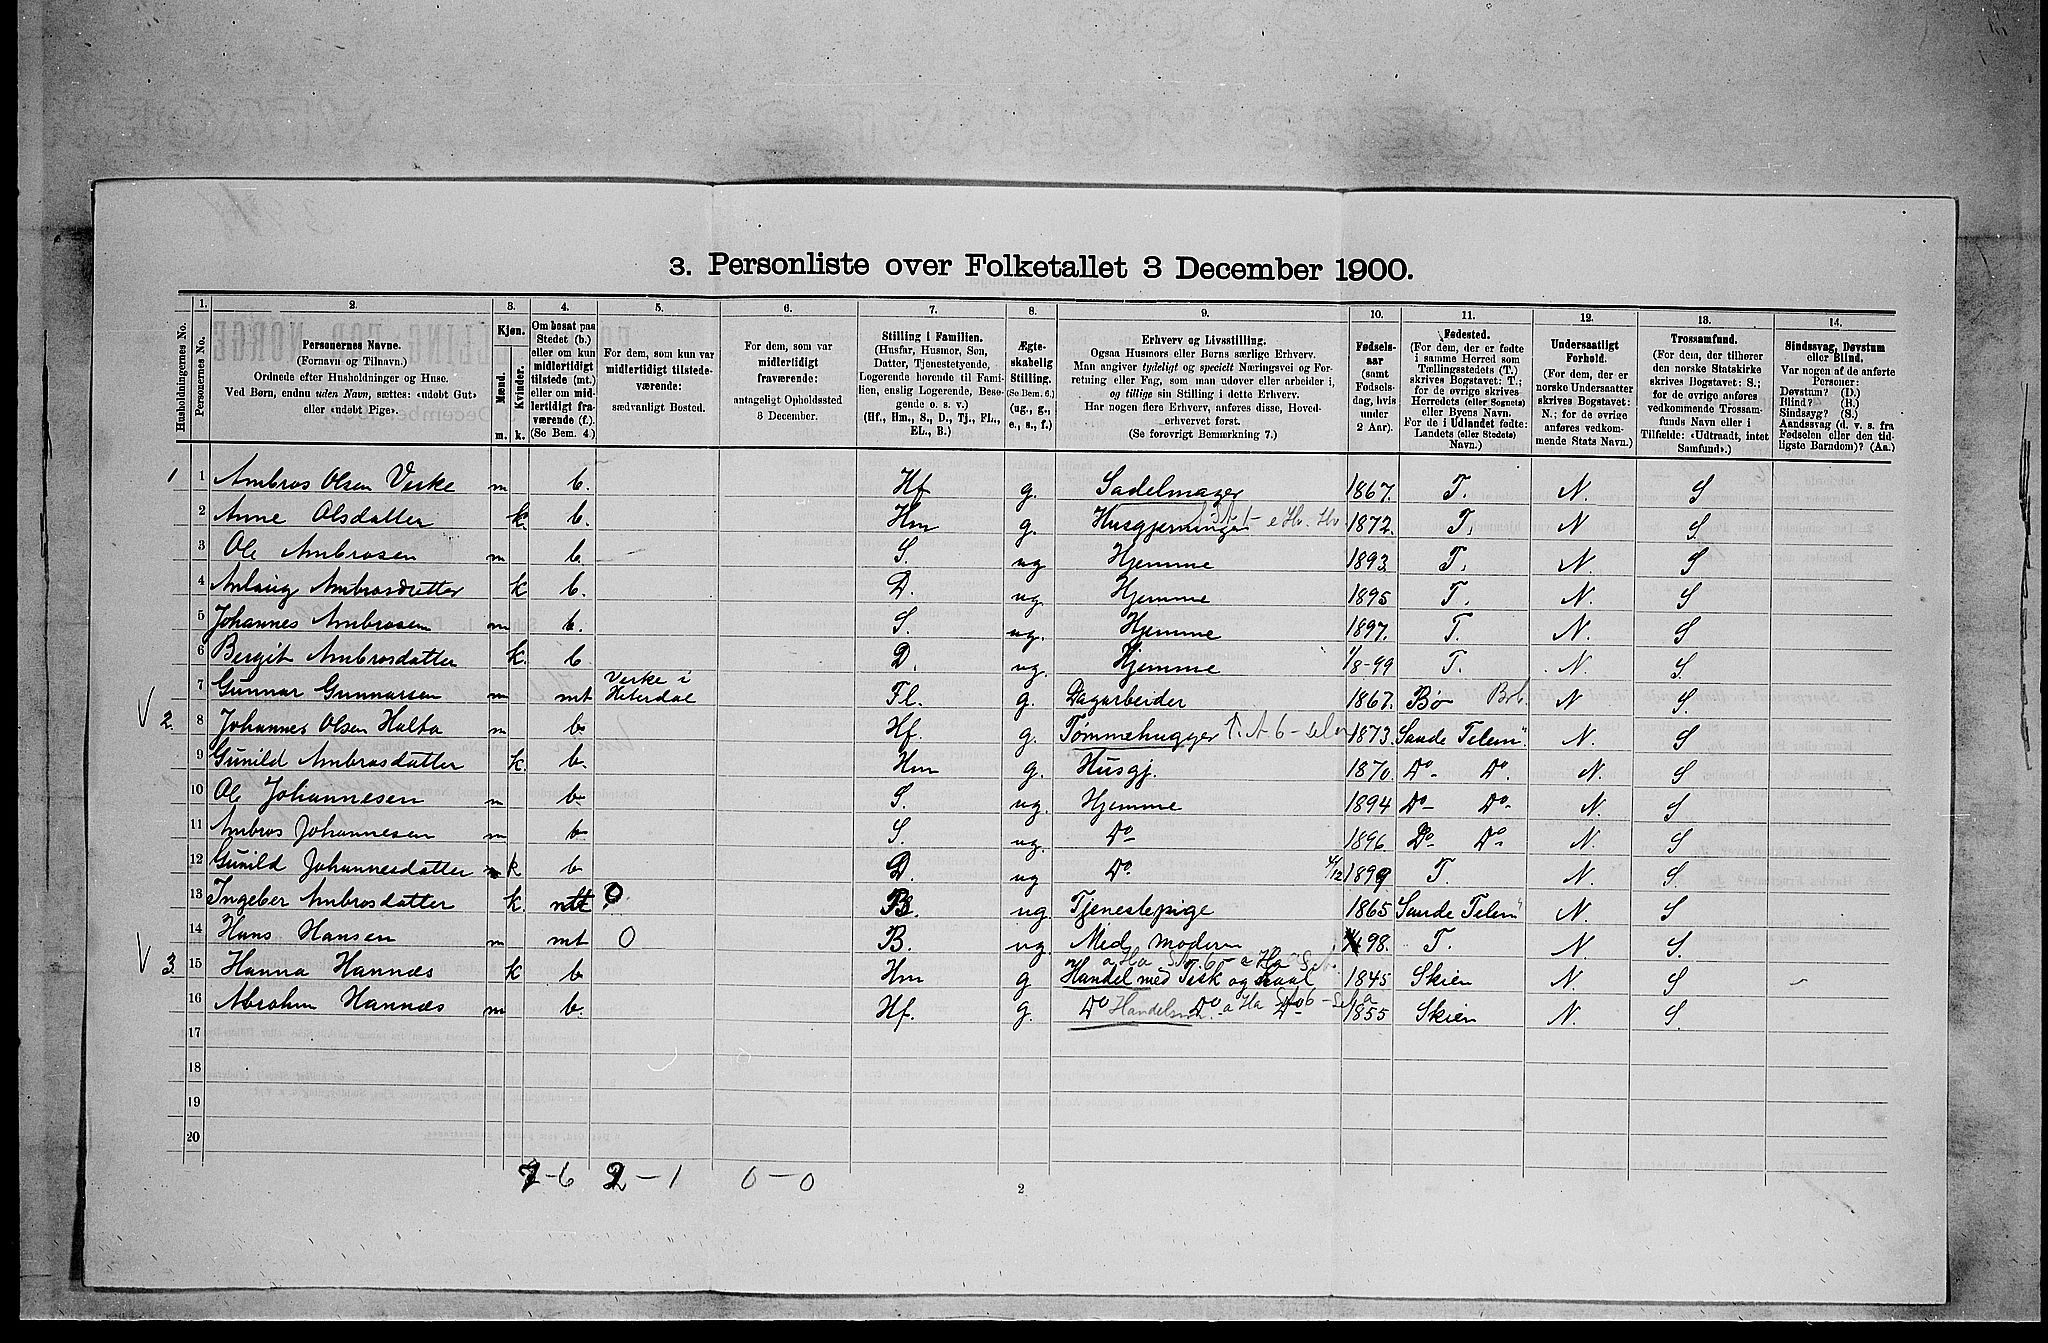 3. Personliste over Folketallet 3 December 1900.
Husholdningernes No.
1. Personernes No.
2. Personernes Navne. (Fornavn og Tilnavn.) Ordnede efter Husholdninger og Huse. Ved Børn, endnu uden Navn, sættes: «udøbt Gut» eller «udøbt Pige».
3. Kjøn. Mænd. Kvinder. m. k.
4. Om bosat paa Stedet (b.) eller om kun midlertidigt tilstede (mt.) eller om midlertidigt fraværende (f.). (Se Bem. 4.)
5. For dem, som kun var midlertidigt tilstedeværende: sædvanligt Bosted.
6. For dem, som var midlertidigt fraværende: antageligt Opholdssted 3 December.
7. Stilling i Familien. (Husfar, Husmor, Søn, Datter, Tjenestetyende, Logerende hørende til Familien, enslig Logerende, Besøgende o. s. v.) (Hf., Hm., S., D., Tj., FL., EL., B.)
8. Ægteskabelig Stilling. (Se Bem. 6.) (ug., g., e., s., f.)
9. Erhverv og Livsstilling. Ogsaa Husmors eller Børns særlige Erhverv. Man angiver tydeligt og specielt Næringsvei og Forretning eller Fag, som man udøver eller arbeider i, og tillige sin Stilling i dette Erhverv. Har nogen flere Erhverv, anføres disse, Hovederhvervet først. (Se forøvrigt Bemærkning 7.)
10. Fødselsaar (samt Fødselsdag, hvis under 2 Aar).
11. Fødested. (For dem, der er fødte i samme Herred som Tællingsstedets (T.) skrives Bogstavet: T.; for de øvrige skrives Herredets (eller Sognets) eller Byens Navn. For de i Udlandet fødte: Landets (eller Stedets) Navn.)
12. Undersaatligt Forhold. (For dem, der er norske Undersaatter skrives Bogstavet: N.; for de øvrige anføres vedkommende Stats Navn.)
13. Trossamfund. (For dem, der tilhører den norske Statskirke skrives Bogstavet: S.; for de øvrige anføres vedkommende Trossamfunds Navn eller i Tilfælde: «Udtraadt, intet Samfund».)
14. Sindssvag, Døvstum eller Blind. Var nogen af de anførte Personer: Døvstum? (D.) Blind? (B.) Sindssyg? (S.) Aandssvag (d. v. s. fra Fødselen eller den tidligste Barndom)? (Aa.)
1 1 Ambros Olsen Verke m b. Hf g. Sadelmager 1867. T. N. S
2 Anne Olsdatter k. b. Hm g. Husgjerninger 1872. T. N S.
3 Ole Ambrosen m b. S. ug Hjemme 1893. T. N. S
4 Aslaug Ambrosdatter k b. D. ug. Hjemme 1895 T. N. S
5 Johannes Ambrosen m b. S. ug. Hjemme 1897. T. N. S
6 Bergit Ambrosdatter k. b D. ug. Hjemme 1/8-99 T. N. S.
7 Gunnar Gunnarsen m mt Verke i Hiterdal FL. g. Dagarbeider 1867. Bø N S.
V 2. 8 Johannes Olsen Holta m b Hf. g. Tømmehugger 1873. Saude Telem. N. S
9 Gunild Ambrosdatter k. b. Hm g. Husgj. 1870. Do Do. N. S
10 Ole Johannesen m b. S. ug. Hjemme 1894 Do Do N. S
11 Ambros Johannesen m b S. ug. Do 1896. Do Do N. S
12 Gunild Johannesdatter k b D. ug Do 4/12 1899 T. N. S.
13 Ingeber Ambrosdatter k. mt O B. ug. Tjenestepige 1865 Saude Telem N. S
14 Hans Hansen m mt O B. ug Med modern 98. T. N. S.
V 3. 15 Hanna Hannæs k b Hm g Handel med Fisk og 1845 Skien N. S
16 Abrahm Hannæs m b. Hf. g. Do Handelsm. Do Do 1855 Skien N. S.
17
18
19
20
7-6 2-1 0-0
2